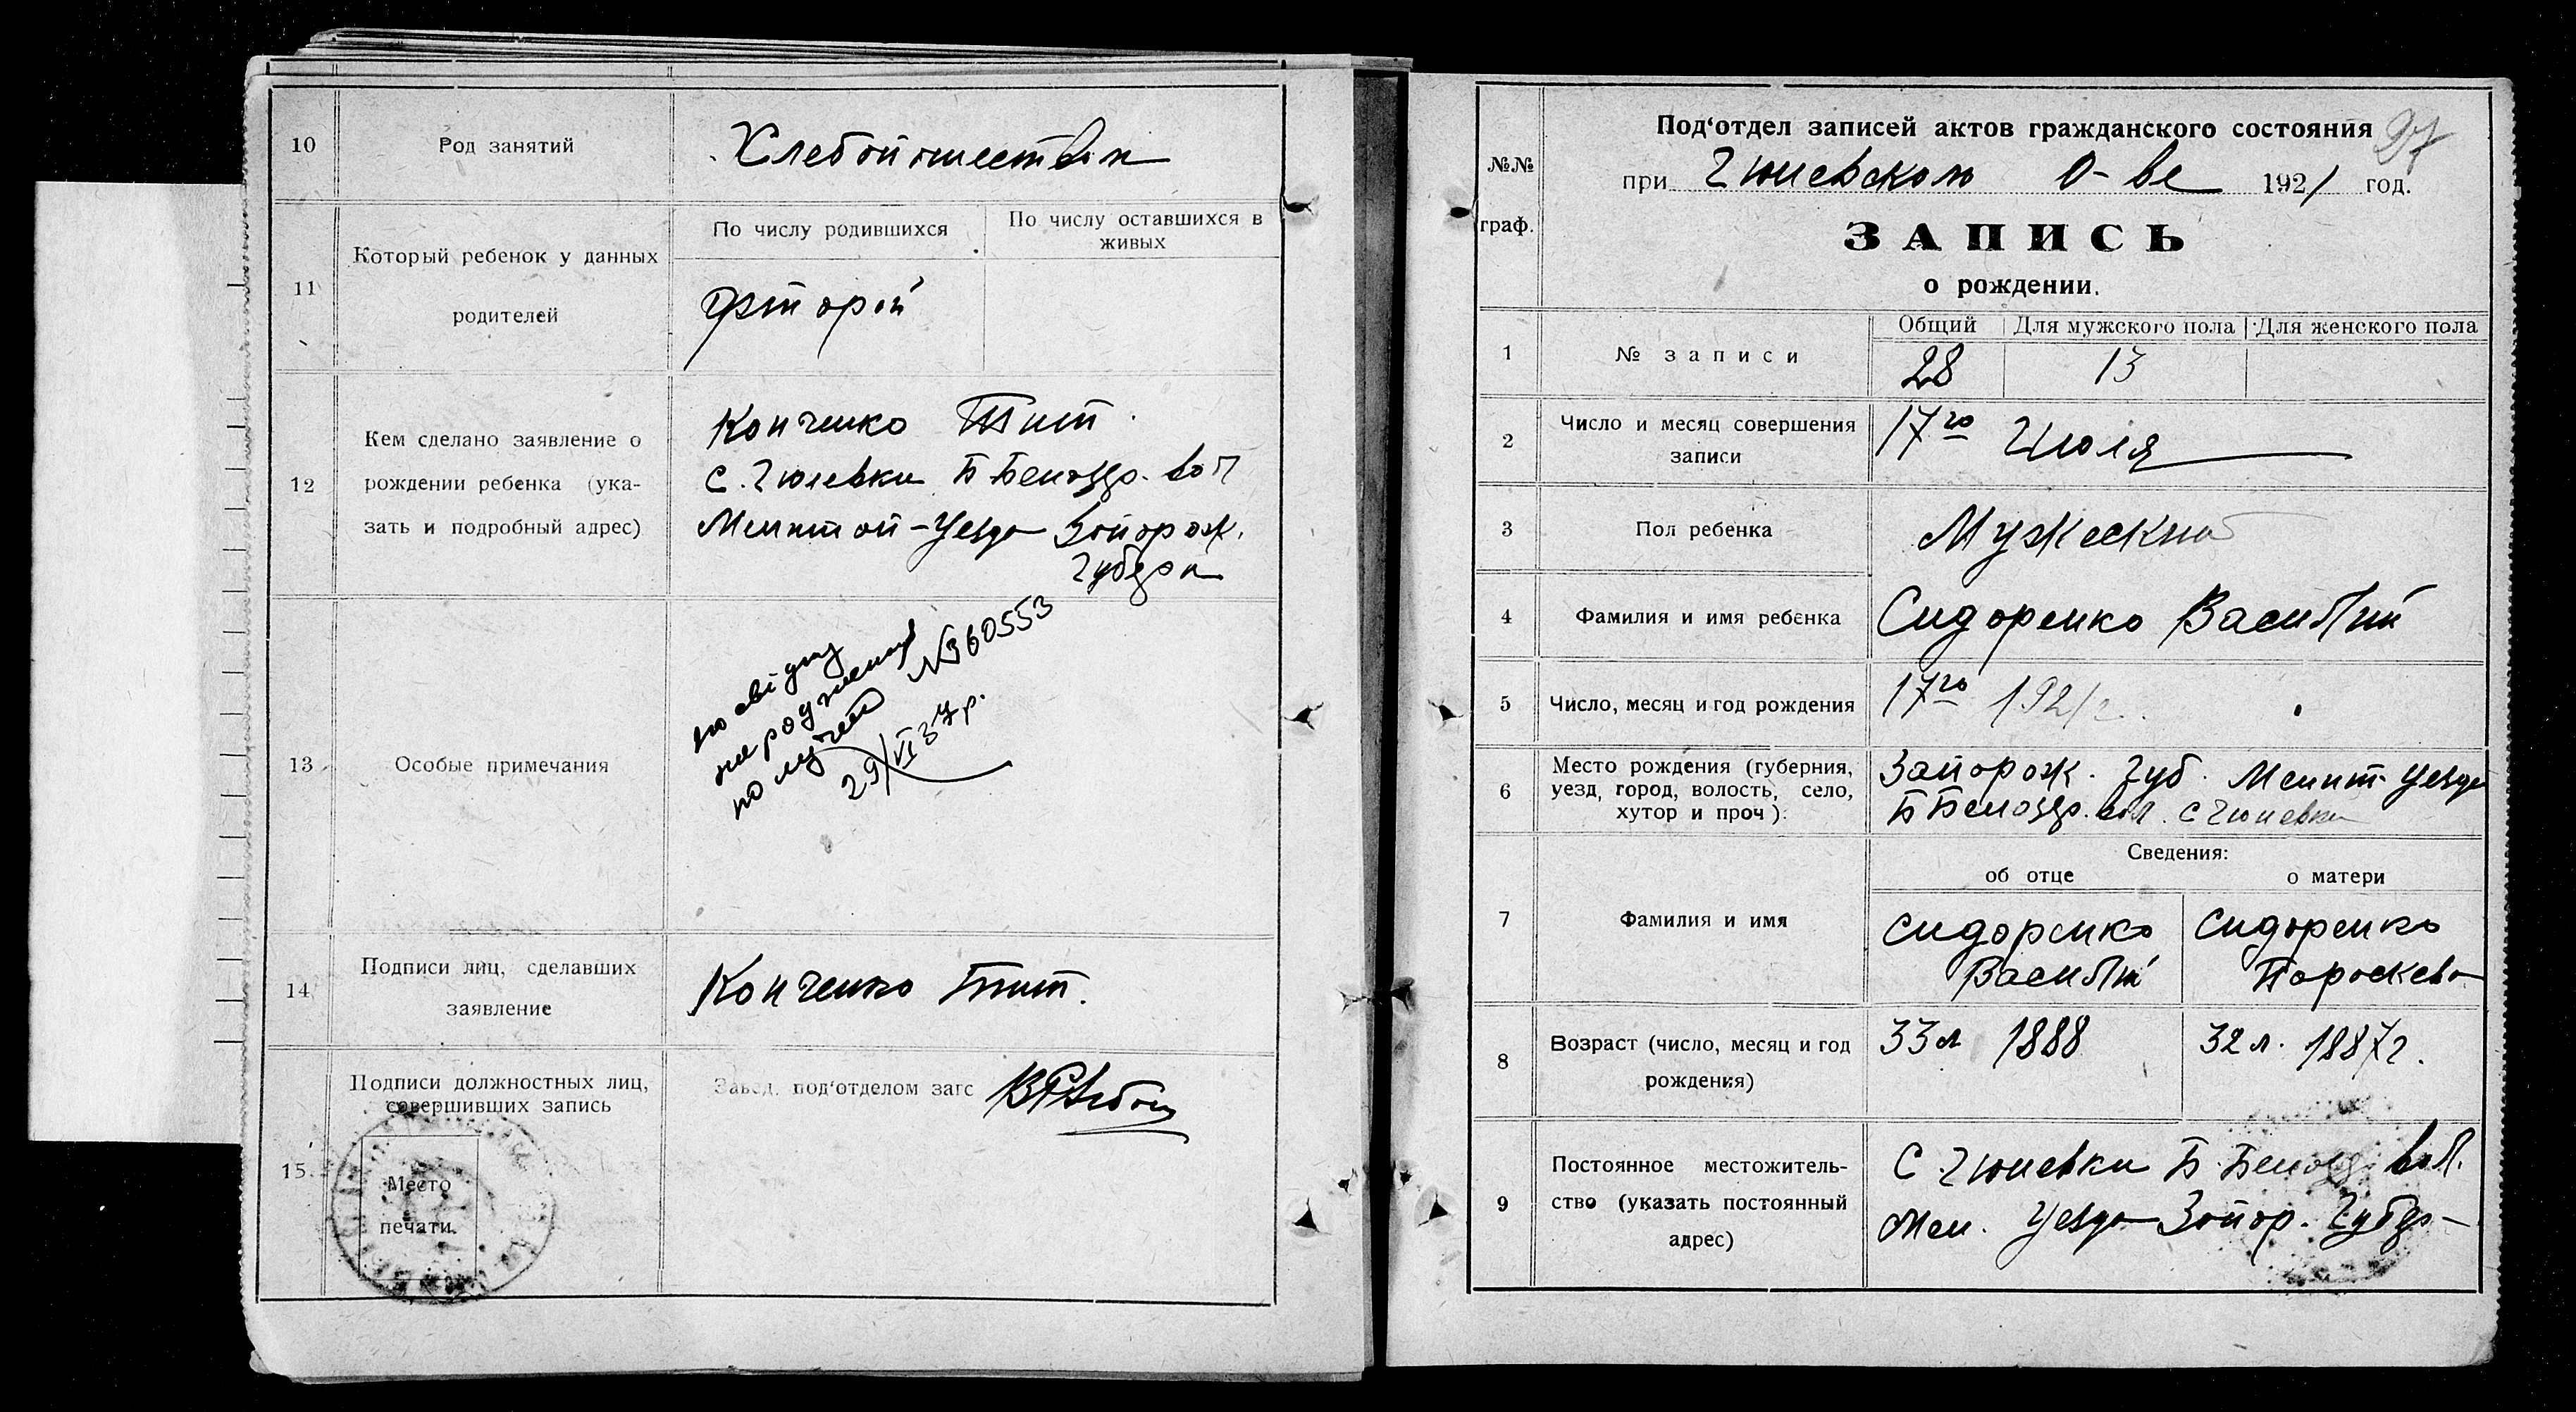 10
Род занятий
Хлебопошеством
11
Который ребенок у данных
родителей
По числу родившихся
По числу оставшихся в
живых
Фторой
12
Кем сделано заявление о
рождении ребенка (ука-
зать и подробный адрес)
Конченко Тит
с. Гюневки Б Белозер. вол
Мелитоп-Уезда Запорож.
Губер
13
Особые примечания
по свідку
народження
получен №360553
29/VI 37р.
14
Подписи лиц, сделавших
заявление
Конченко Тит.
15.
Подписи должностных лиц,
совершивших запись
Завед. под'отделом загс
Место
печати.
97
№№
граф.
Под'отдел записей актов гражданского состояния
при Гюневском О-ве 1921 год.
ЗАПИСЬ
о рождении.
1
№ записи
Общий
Для мужского пола
Для женского пола
28
13
2
Число и месяц совершения
записи
17го Июля
3
Пол ребенка
Мужеский
4
Фамилия и имя ребенка
Сидоренко Василий
5
Число, месяц и год рождения
17го 1921г.
6
Место рождения (губерния,
уезд, город, волость, село,
хутор и проч).
Запорож. Губ. Мелит. Уезда
Б Белозер. вол. с Гюневки
Сведения:
об отце
о матери
7
Фамилия и имя
Сидоренко
Василий
Сидоренко
Пароскева
8
Возраст (число, месяц и год
рождения)
33л 1888
32л. 1887г.
9
Постоянное местожитель-
ство (указать постоянный
адрес)
С. Гюневки Б. Белозер. вол.
Мел. Уезда Запор. Губер-